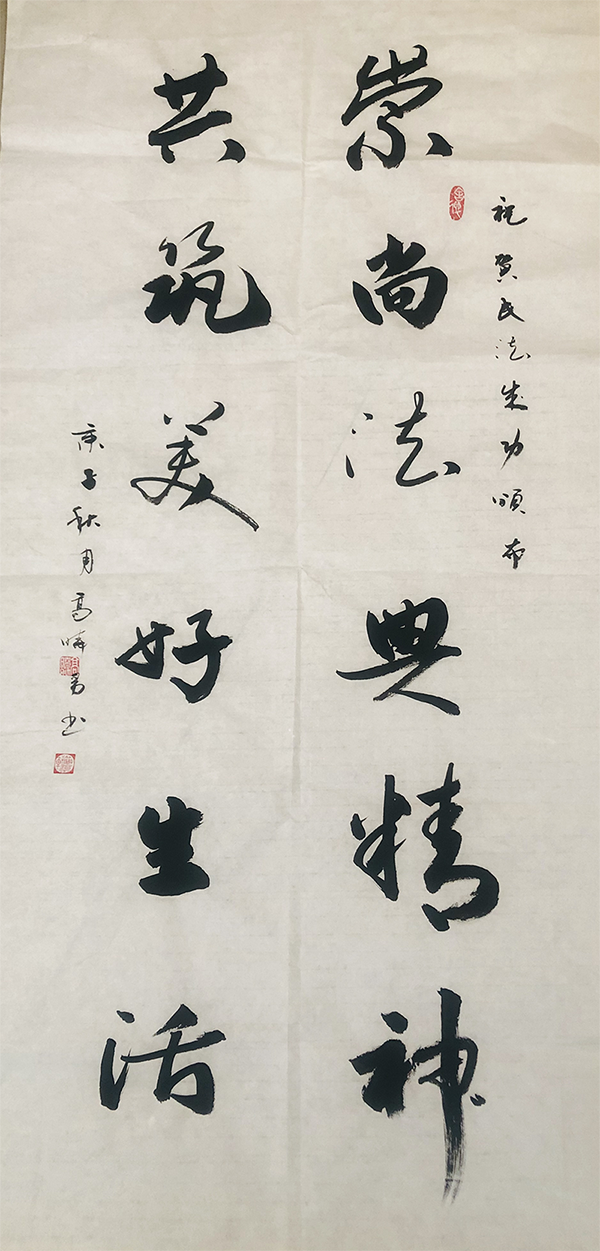 祝贺民法成功颂布
崇尚法典精神
共筑美好生活
庚子秋月高
书